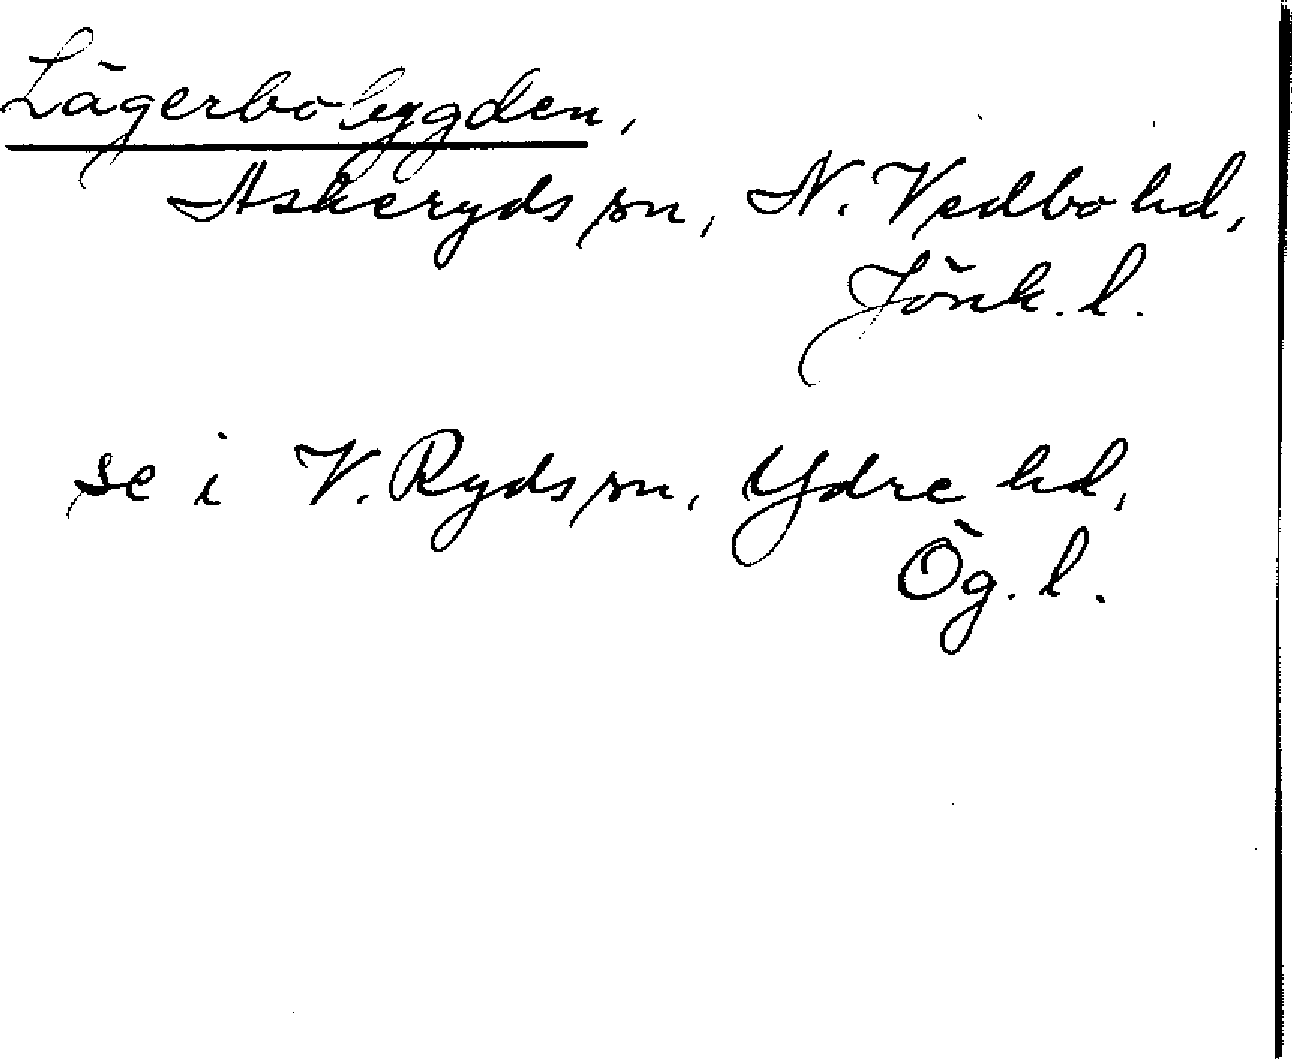 Lägerbobygden,
Askeryds sn, N. Vedbo hd,
Jönk. l.
se i V. Ryds sn, Ydre hd,
Ög. l.